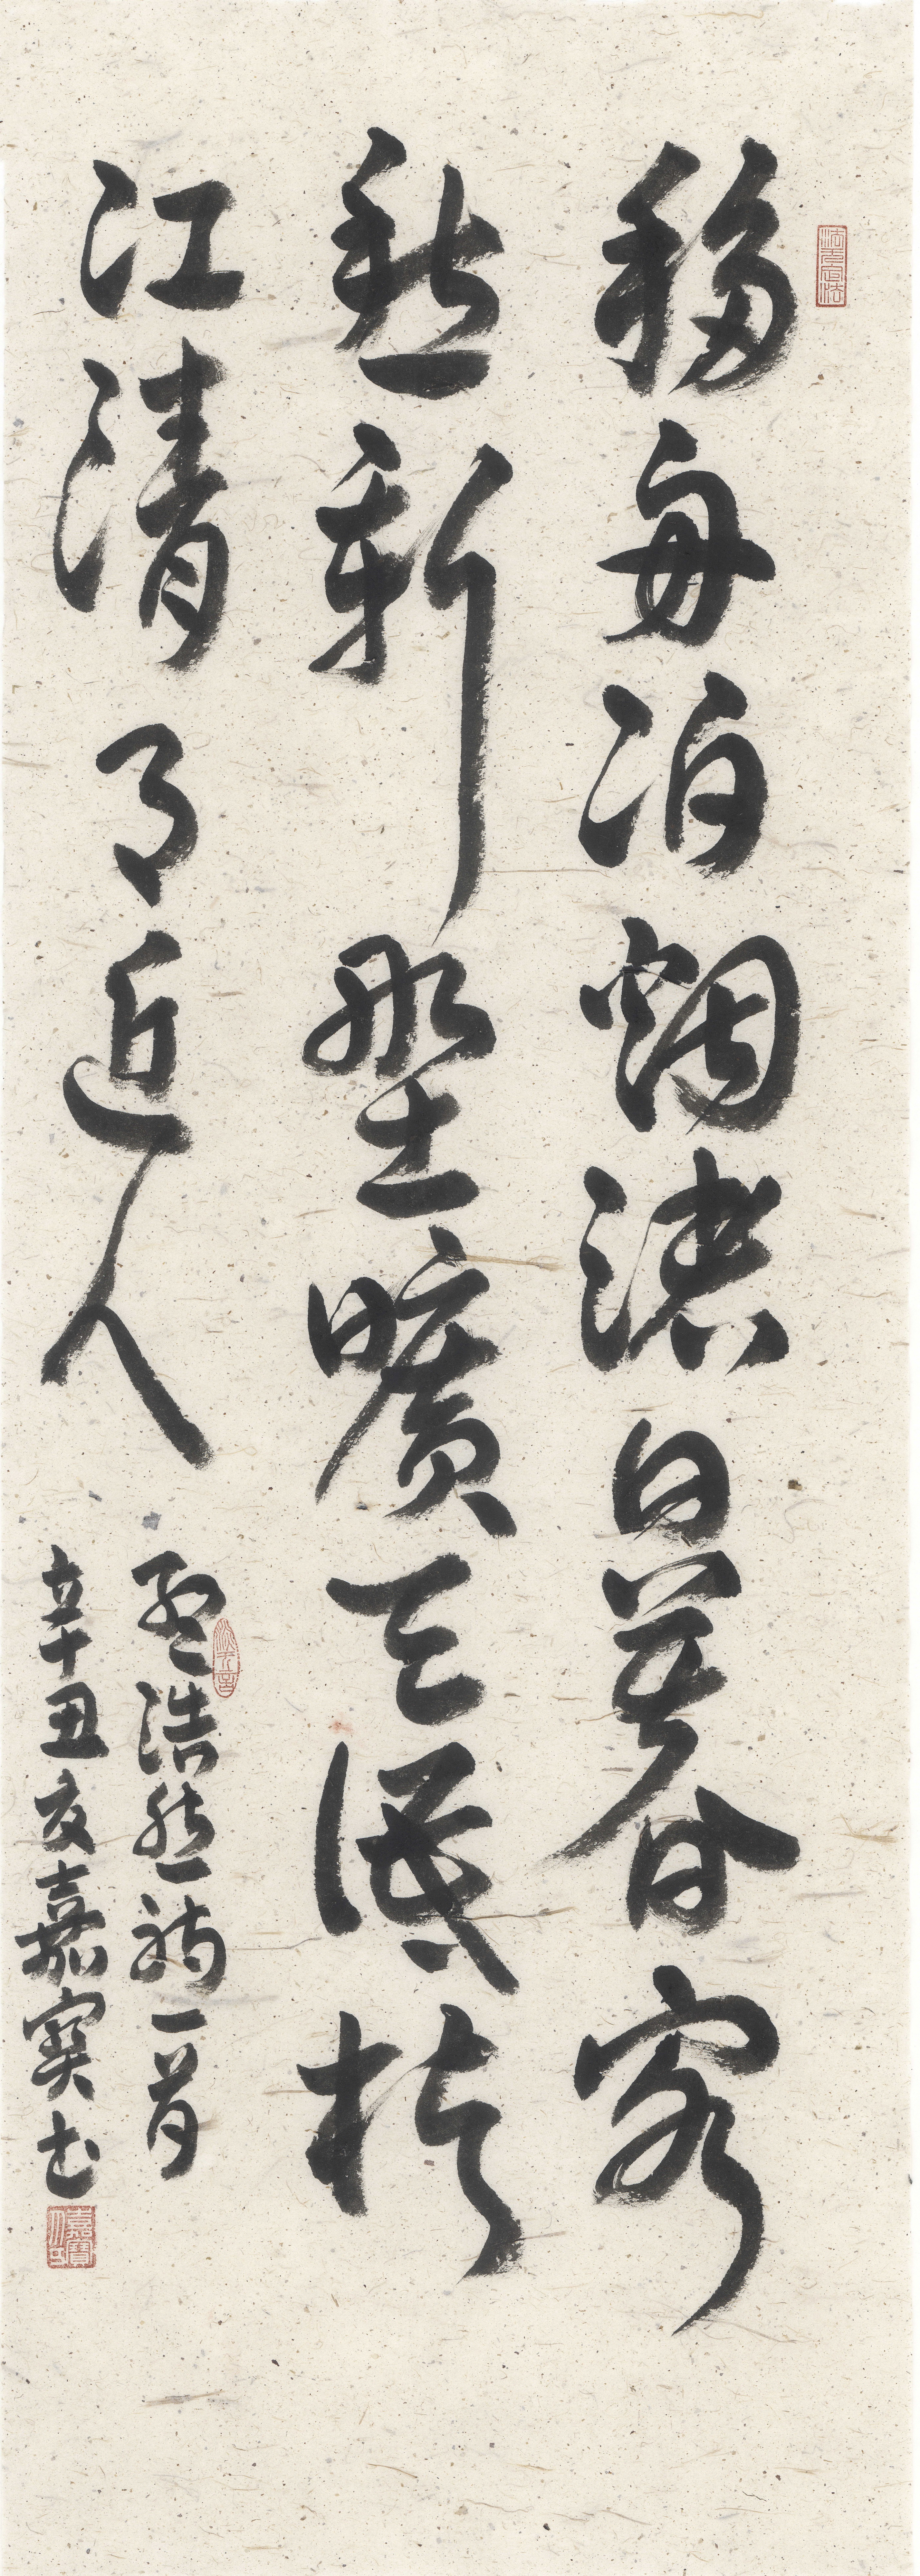 移舟泊烟渚日暮客
愁新野曠天低樹
江清月近人
孟浩然詩一首
辛丑夏嘉寶书